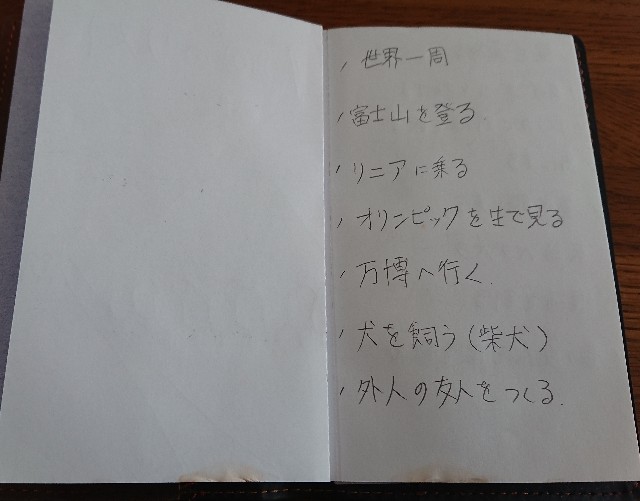 、世界一周
、富士山を登る.
、リニアに乗る
、オリンピックを生で見る
、万博へ行く.
、犬を飼う(柴犬)
、外人の友人をつくる.